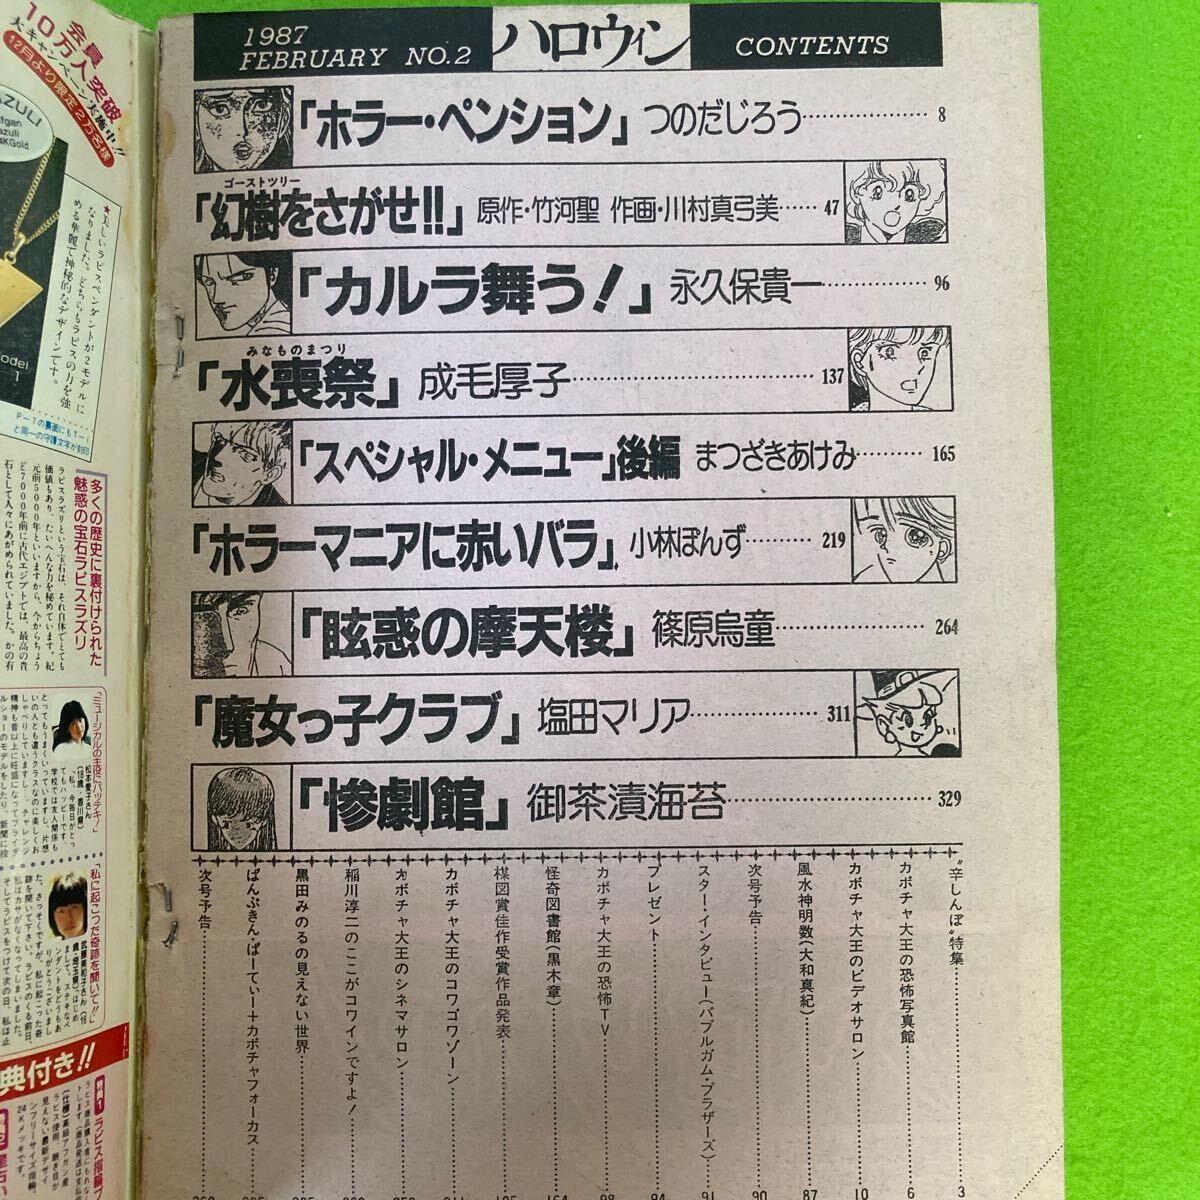 1987
FEBRUARY NO.2
ハロウィン
CONTENTS
「ホラー・ペンション」つのだじろう 8
ゴーストツリー
「幻樹をさがせ!!」原作・竹河聖 作画・川村真弓美 47
「カルラ舞う!」永久保貴一 96
みなものまつり
「水喪祭」成毛厚子 137
「スペシャル・メニュー」後編 まつざきあけみ 165
「ホラーマニアに赤いバラ」小林ぽんず 219
「眩惑の摩天楼」篠原烏童 264
「魔女っ子クラブ」塩田マリア 311
「惨劇館」御茶漬海苔 329
“辛しんぼ”特集 3
カボチャ大王の恐怖写真館 6
カボチャ大王のビデオサロン 10
風水神明数(大和真紀) 87
次号予告 90
スター・インタビュー(バブルガム・ブラザーズ) 91
プレゼント 94
カボチャ大王の恐怖TV 98
怪奇図書館(黒木章) 164
楳図賞佳作受賞作品発表
カボチャ大王のコワゴワゾーン
カボチャ大王のシネマサロン
稲川淳二のここがコワインですよ!
黒田みのるの見えない世界
ぱんぷきん・ぱーてぃー+カボチャフォーカス
次号予告
会員
10万人突破
大キャンペーン実施中!!
12月より限定2万名様
AZULI
★美しいラピスペンダントが2モデルに
なりました。どちらもラピスの力を強
める華麗で神秘的なデザインです。
P-1の裏面にもT-1
と同一の守護文字が刻印
多くの歴史に裏付けられた
魅惑の宝石ラピスラズリ
ラピスラズリという宝石は、それ自体でとても
価値もあり、たいへんな力を秘めています。紀
元前5000年といいますから、今からちょう
ど7000年前に古代エジプトでは、最高の貴
石として人々にあがめられていました。かの有
「ミュージカルの主役にバッテキ!」
松本愛子さん
(18歳・香川県)
「私に起こった奇跡を聞いて!!」
典付き!!
特典1 ラピス指輪プ
24Kメッキです。